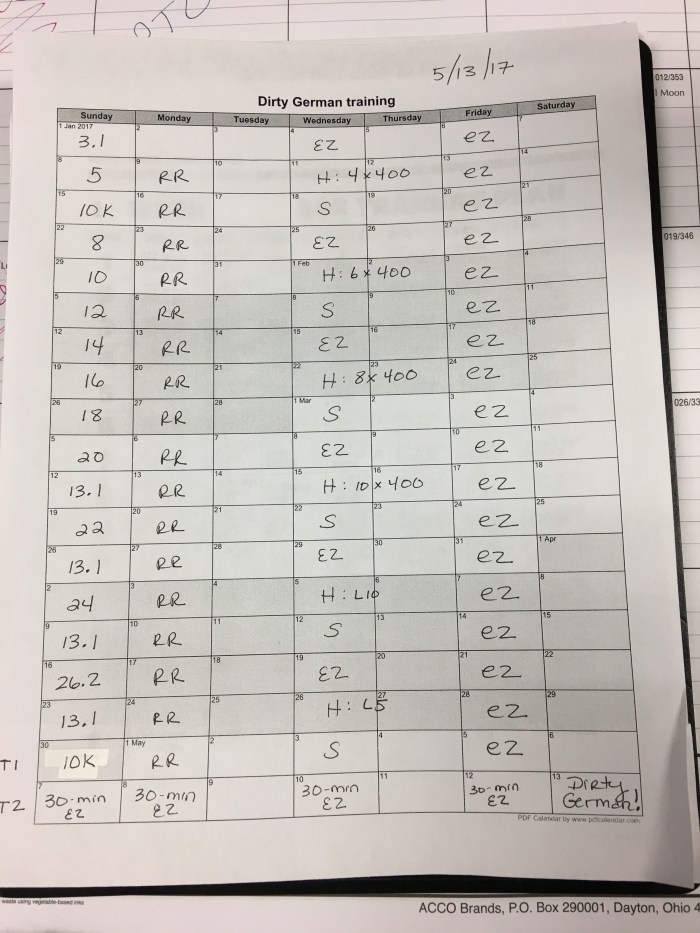 012/353
Moon
5/13/17
Dirty German training
Sunday Monday Tuesday Wednesday Thursday Friday Saturday
1 Jan 2017 2 3 4 5 6 7
3.1 EZ ez
8 9 10 11 12 13 14
5 RR H: 4x400 ez
15 16 17 18 19 20 21
10K RR S ez
22 23 24 25 26 27 28
8 RR EZ ez
019/346
29 30 31 1 Feb 2 3 4
10 RR H: 6x400 ez
5 6 7 8 9 10 11
12 RR S ez
12 13 14 15 16 17 18
14 RR EZ ez
19 20 21 22 23 24 25
16 RR H: 8x400 ez
26 27 28 1 Mar 2 3 4
18 RR S ez
026/33
5 6 7 8 9 10 11
20 RR EZ ez
12 13 14 15 16 17 18
13.1 RR H: 10x400 ez
19 20 21 22 23 24 25
22 RR S ez
26 27 28 29 30 31 1 Apr
13.1 RR EZ ez
2 3 4 5 6 7 8
24 RR H: L10 ez
9 10 11 12 13 14 15
13.1 RR S ez
16 17 18 19 20 21 22
26.2 RR EZ ez
23 24 25 26 27 28 29
13.1 RR H: L5 ez
30 1 May 2 3 4 5 6
T1 10K RR S ez
7 8 9 10 11 12 13
T2 30-min 30-min 30-min 30-min Dirty
EZ EZ EZ EZ German!
PDF Calendar by www.pdfcalendar.com
waste using vegetable-based inks
ACCO Brands, P.O. Box 290001, Dayton, Ohio 4